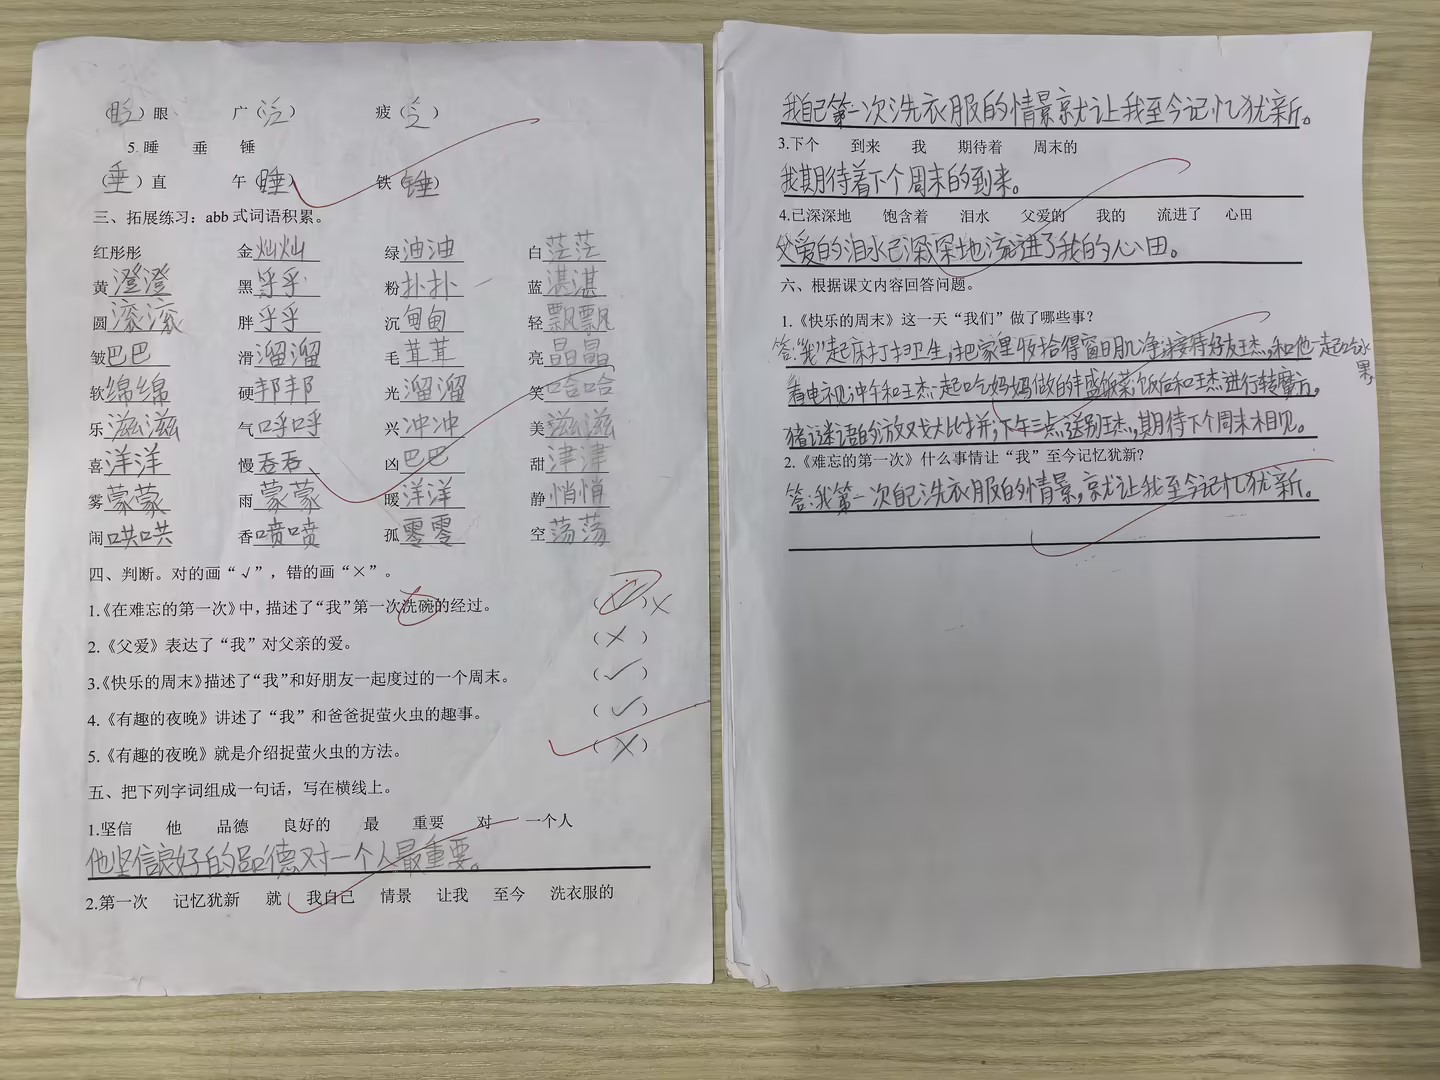 （眨）眼 广（泛） 疲（乏）
5. 睡 垂 锤
（垂）直 午（睡） 铁（锤）
三、拓展练习：abb 式词语积累。
红彤彤 金灿灿 绿油油 白茫茫
黄澄澄 黑乎乎 粉扑扑 蓝湛湛
圆滚滚 胖乎乎 沉甸甸 轻飘飘
皱巴巴 滑溜溜 毛茸茸 亮晶晶
软绵绵 硬邦邦 光溜溜 笑哈哈
乐滋滋 气呼呼 兴冲冲 美滋滋
喜洋洋 慢吞吞 凶巴巴 甜津津
雾蒙蒙 雨蒙蒙 暖洋洋 静悄悄
闹哄哄 香喷喷 孤零零 空荡荡
四、判断。对的画“√”，错的画“×”。
1.《在难忘的第一次》中，描述了“我”第一次洗碗的经过。 （√）×
2.《父爱》表达了“我”对父亲的爱。 （×）
3.《快乐的周末》描述了“我”和好朋友一起度过的一个周末。 （√）
4.《有趣的夜晚》讲述了“我”和爸爸捉萤火虫的趣事。 （√）
5.《有趣的夜晚》就是介绍捉萤火虫的方法。 （×）
五、把下列字词组成一句话，写在横线上。
1.坚信 他 品德 良好的 最 重要 对 一个人
他坚信良好的品德对一个人最重要。
2.第一次 记忆犹新 就 我自己 情景 让我 至今 洗衣服的
我自己第一次洗衣服的情景就让我至今记忆犹新。
3.下个 到来 我 期待着 周末的
我期待着下个周末的到来。
4.已深深地 饱含着 泪水 父爱的 我的 流进了 心田
父爱的泪水已深深地流进了我的心田。
六、根据课文内容回答问题。
1.《快乐的周末》这一天“我们”做了哪些事？
答：“我”起床打扫卫生，把家里收拾得窗明几净；接待好友王杰，和他一起吃水果，
看电视；中午和王杰一起吃妈妈做的丰盛饭菜；饭后和王杰进行转魔方、
猜谜语的游戏大比拼；下午三点送别王杰，期待下个周末相见。
2.《难忘的第一次》什么事情让“我”至今记忆犹新？
答：我第一次自己洗衣服的情景，就让我至今记忆犹新。